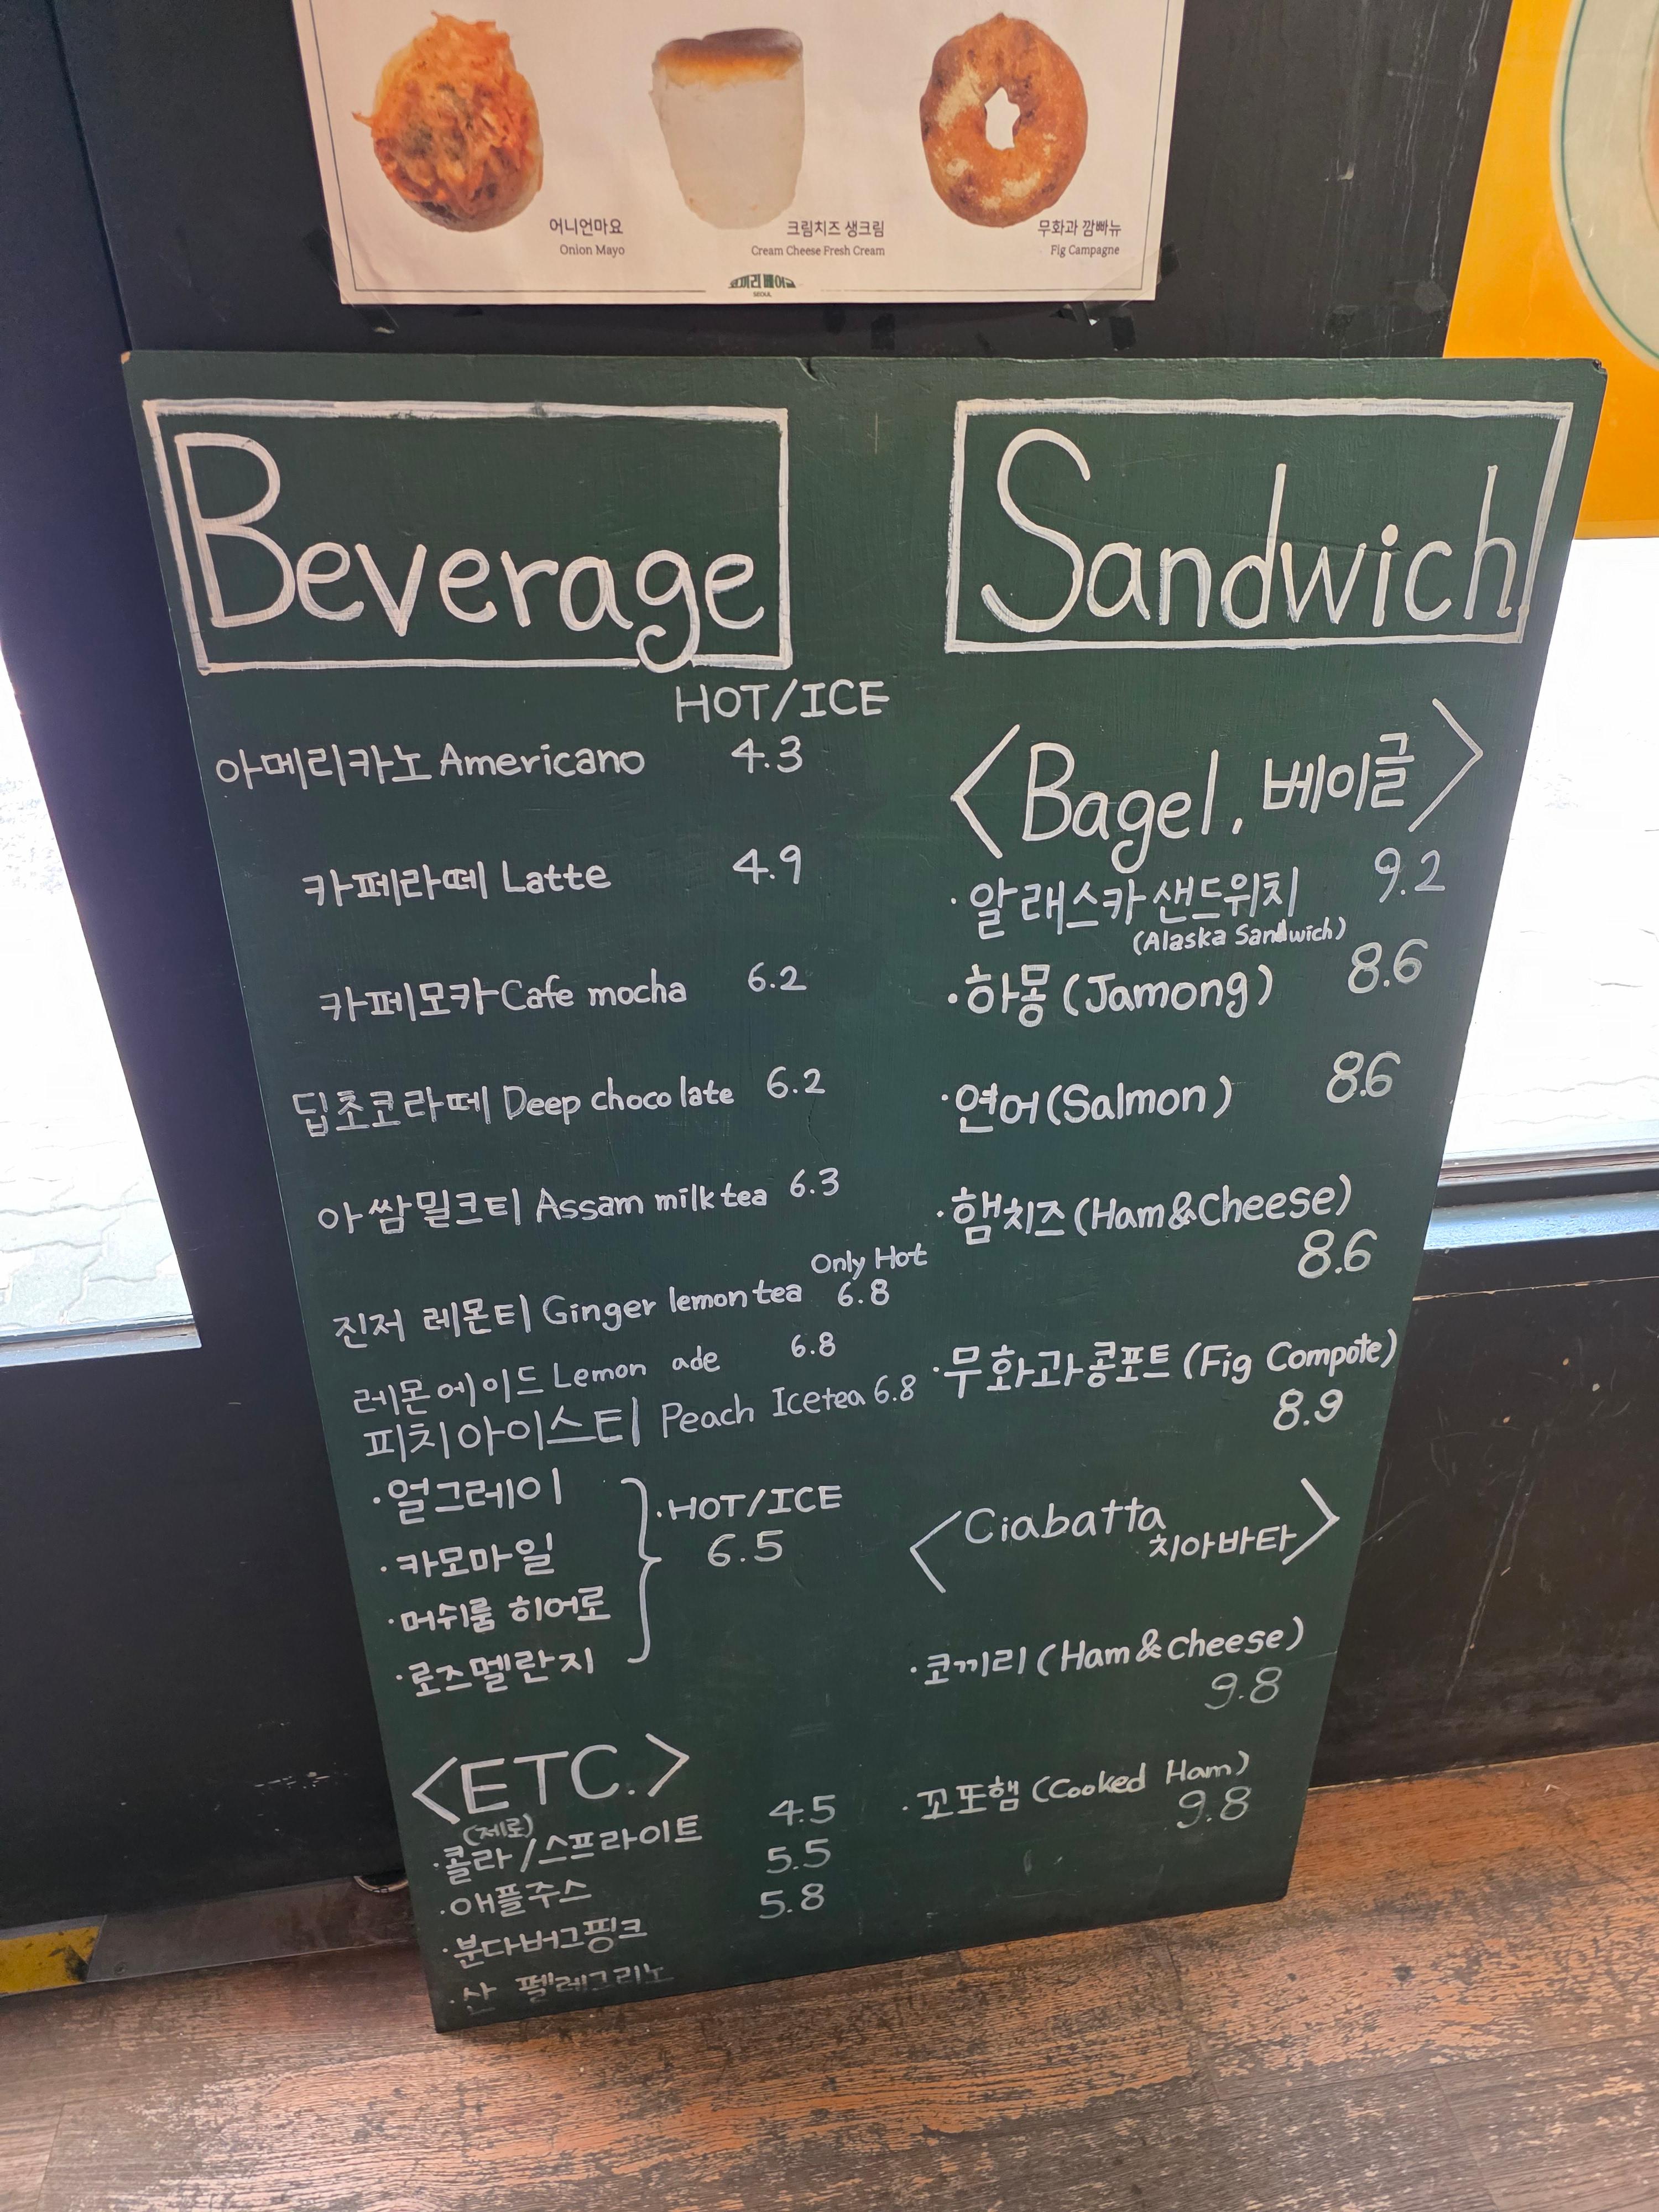 어니언마요
Onion Mayo
크림치즈 생크림
Cream Cheese Fresh Cream
무화과 깜빠뉴
Fig Campagne
코끼리 베이글
SEOUL
Beverage
HOT/ICE
아메리카노 Americano 4.3
카페라떼 Latte 4.9
카페모카 Cafe mocha 6.2
딥초코라떼 Deep chocolate 6.2
아쌈밀크티 Assam milk tea 6.3
Only Hot
진저 레몬티 Ginger lemon tea 6.8
레몬에이드 Lemon ade 6.8
피치아이스티 Peach Icetea 6.8
·얼그레이
·카모마일
·머쉬룸 히어로
·로즈멜란지
·HOT/ICE
6.5
<ETC.>
(제로)
·콜라/스프라이트 4.5
·애플주스 5.5
·분다버그핑크 5.8
·산 펠레그리노
Sandwich
<Bagel. 베이글>
·알래스카 샌드위치 9.2
(Alaska Sandwich)
·하몽 (Jamong) 8.6
·연어(Salmon) 8.6
·햄치즈(Ham&Cheese)
8.6
·무화과콩포트 (Fig Compote)
8.9
<Ciabatta
치아바타>
·코끼리 (Ham&cheese)
9.8
·꼬또햄 (Cooked Ham)
9.8